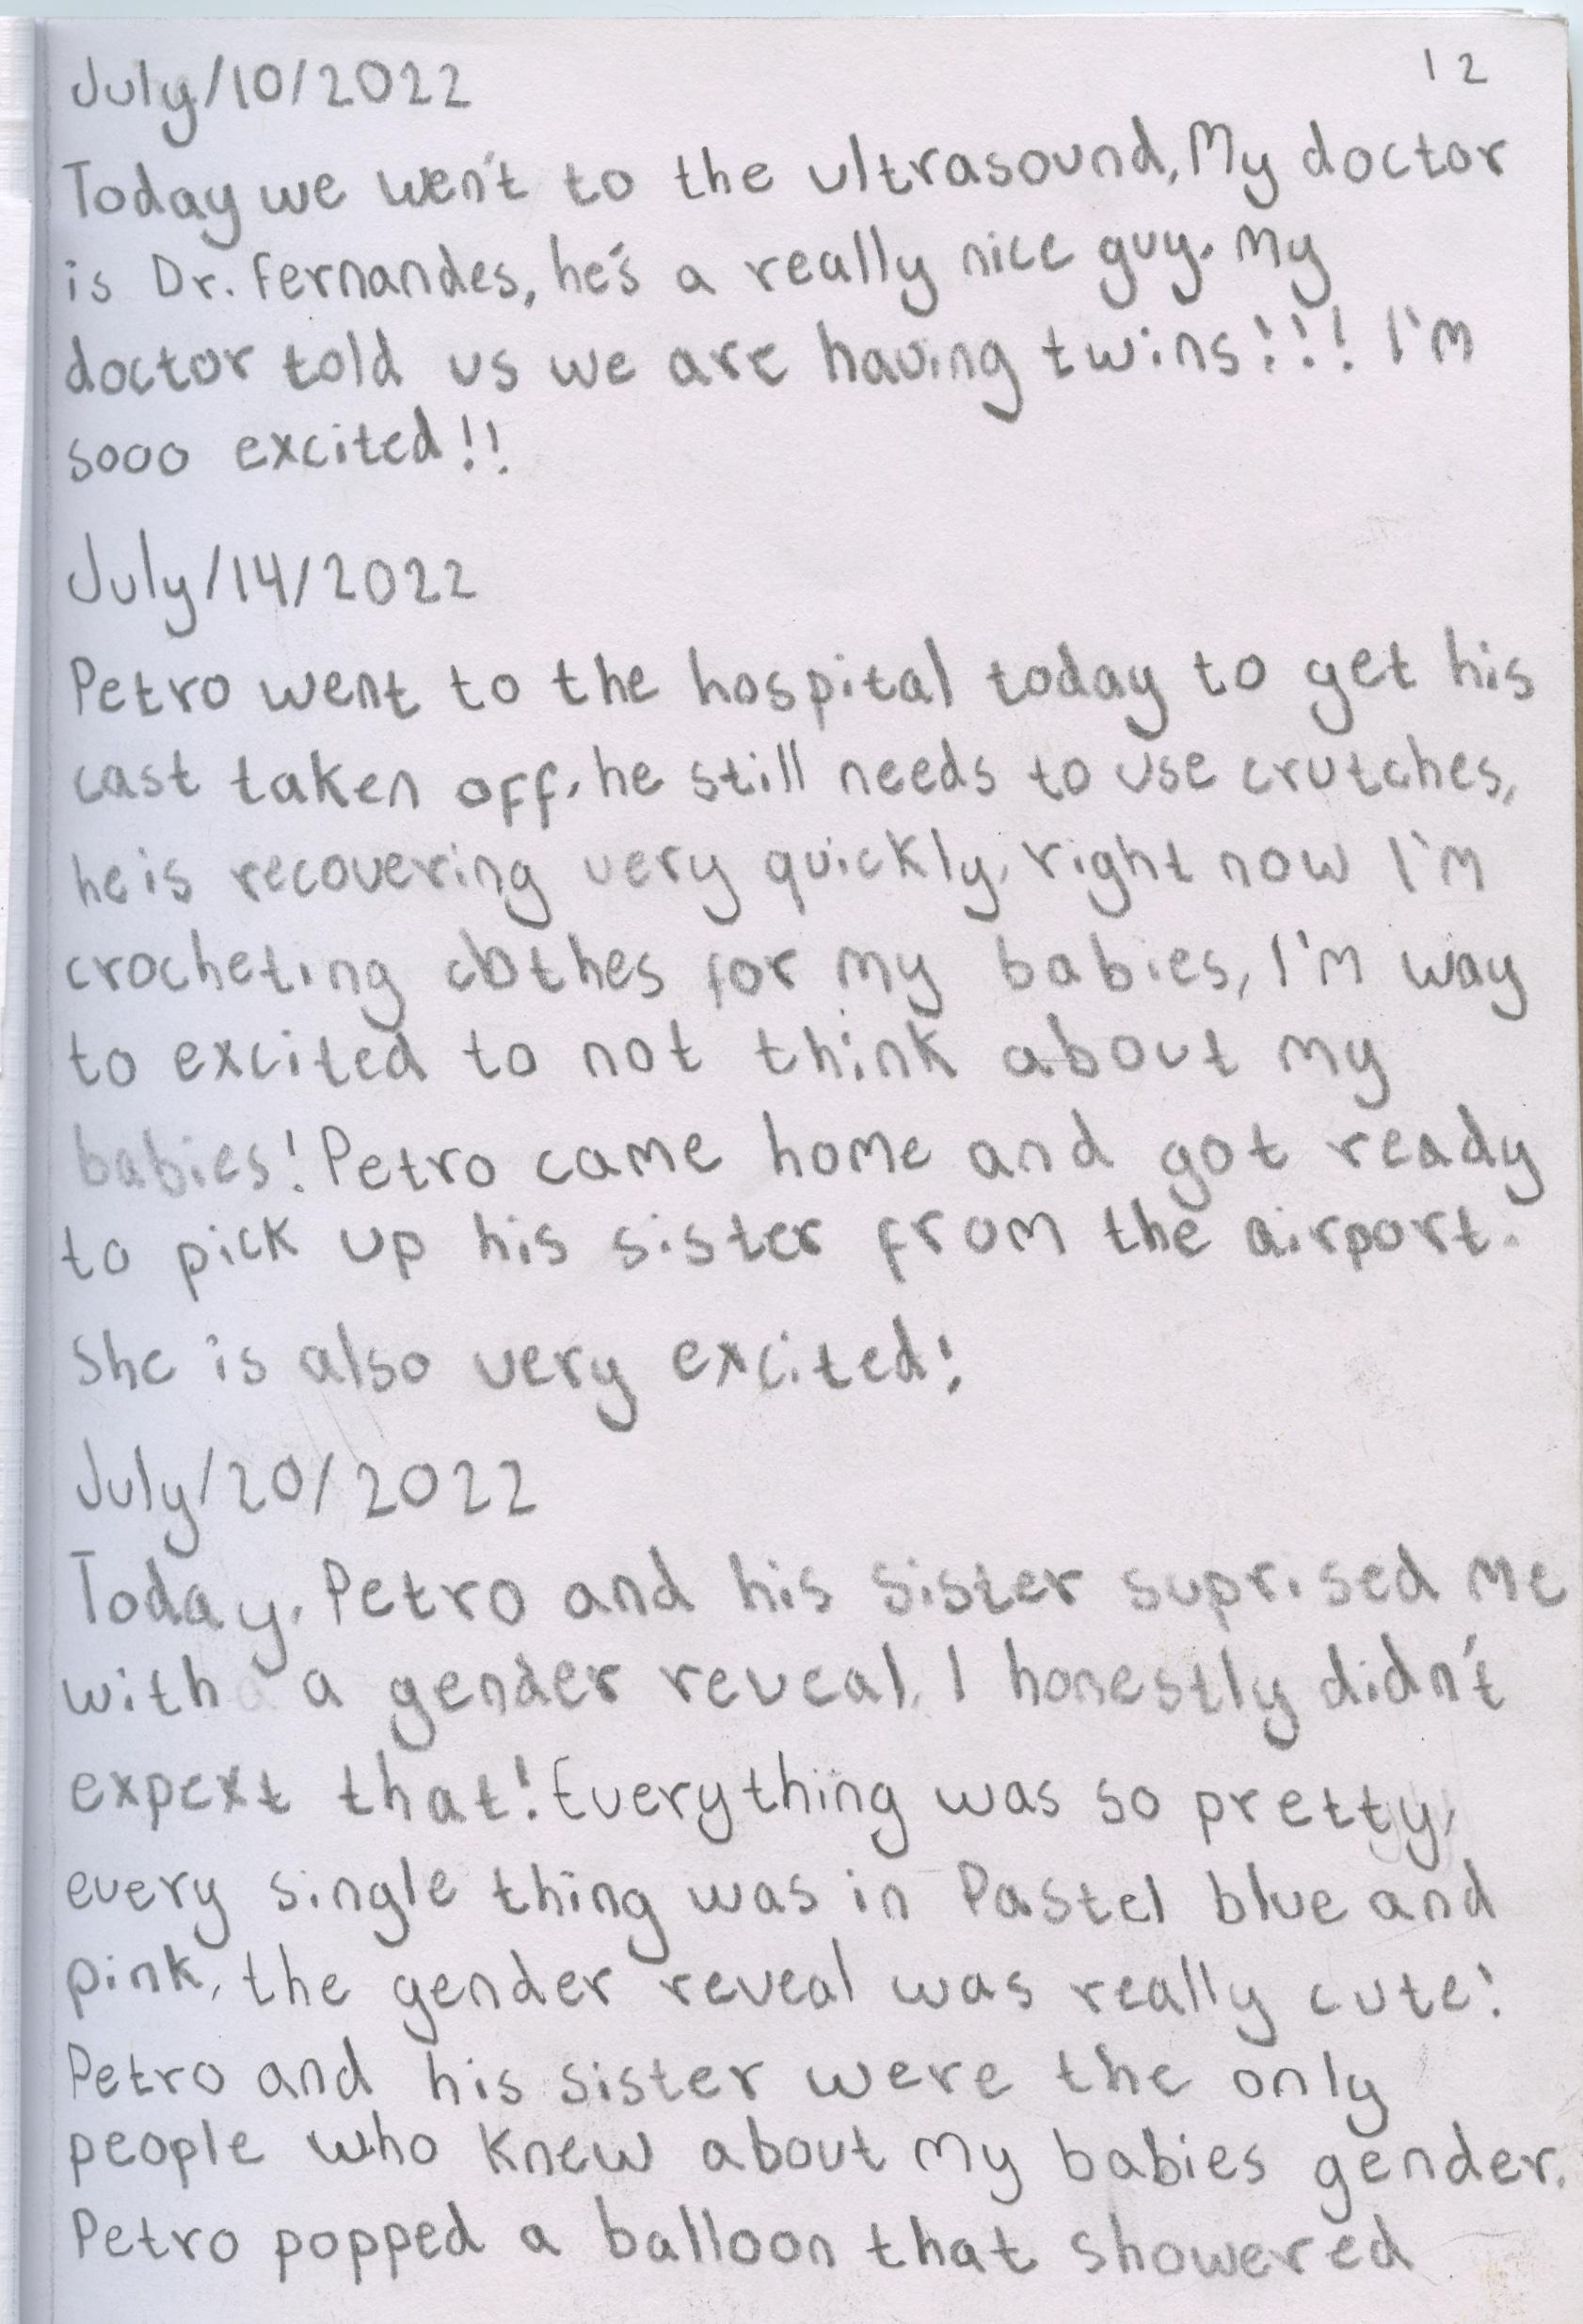 July/10/2022
12
Today we wen't to the ultrasound, My doctor
is Dr. Fernandes, he's a really nice guy. My
doctor told us we are having twins!!! I'm
sooo excited!!
July/14/2022
Petro went to the hospital today to get his
cast taken off, he still needs to use crutches,
he is recovering very quickly, right now I'm
crocheting clothes for my babies, I'm way
to excited to not think about my
babies! Petro came home and got ready
to pick up his sister from the airport.
She is also very excited!
July/20/2022
Today, Petro and his sister suprised me
with a gender reveal, I honestly didn't
expext that! Everything was so pretty,
every single thing was in Pastel blue and
pink, the gender reveal was really cute!
Petro and his sister were the only
people who knew about my babies gender.
Petro popped a balloon that showered